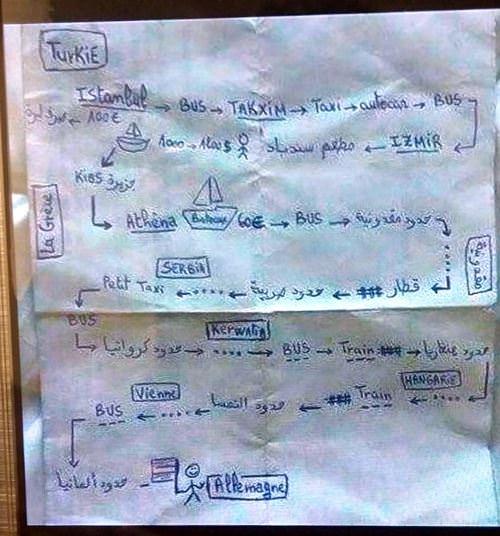 TURKIE
Istanbul → BUS → TAKXIM → Taxi → autocar → BUS
100€
IZMIR ← مطعم سندباد 1000 → 1200$
Kios جزيرة
La Grèce
Athéna Bateau 60€ → BUS → حدود مقدونية
مقدونية
SERBIA
Petit Taxi ← .... ← حدود صربية ← ### قطار
BUS
KerwaTia
حدود كرواتيا → .... → BUS → Train ### → حدود هنغاريا
HANGARIE
Vienne
BUS ← .... ← حدود النمسا ← ### Train ← ....
حدود ألمانيا
Allemagne